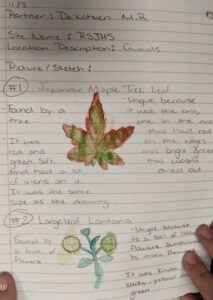 11/3
Partner: DeKohven M.R
Site Name: RSJHS
Location Description: Quads
Picture/Sketch:
#1) Japanese Maple Tree Leaf
Found by a
tree.
It was
red and
green. Soft
and had a lot
of veins on it.
It was the same
size as the drawing.
-Unique because
it was the only
one in the
that had red
on the edges
and bright green
that wasn't
dried out
#2) Largeleaf Lantana
Found by
a bunch of
flowers.
-Unique because
its a ball of little
flowers surrounded
by more flowers
It was kinda
sticky, yellow
green